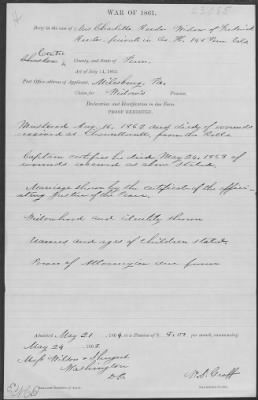 WAR OF 1861.
Brief in the case of Mrs Charlotte Reeder Widow of Frederick
Reeder private in Co. H. 148 Penn Vols
Centre County and State of Penn.
Act of July 14, 1862.
Post Office address of Applicant, Milesburg, Pa.
Claim for Widow's Pension.
Declaration and Identification in due Form
PROOF EXHIBITED.
Mustered Aug. 16, 1862 and died of wounds
received at Chancellorsville, from the Rolls
Captain certifies he died May 24, 1863 of
wounds received as above stated.
Marriage shown by the certificate of the officiating
Justice of the Peace.
Widowhood and identity shown
Names and ages of children stated
Power of Attorney in due form
Admitted May 21 1864 to a Pension of $ 8.00 per month, commencing
May 24 1863.
Washington
D.C.